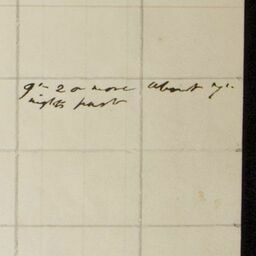 2 or more about
nights past